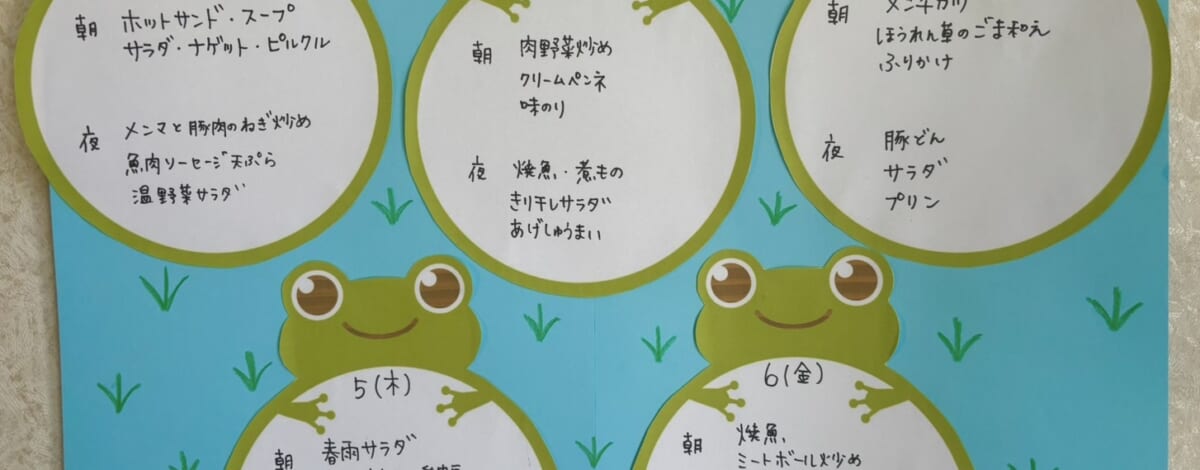 朝 ホットサンド・スープ
サラダ・ナゲット・ピルクル
夜 メンマと豚肉のねぎ炒め
魚肉ソーセージ天ぷら
温野菜サラダ
朝 肉野菜炒め
クリームペンネ
味のり
夜 焼魚・煮もの
きり干しサラダ
あげしゅうまい
朝 メンチカツ
ほうれん草のごま和え
ふりかけ
夜 豚どん
サラダ
プリン
5(木)
朝 春雨サラダ
6(金)
朝 焼魚
ミートボール炒め